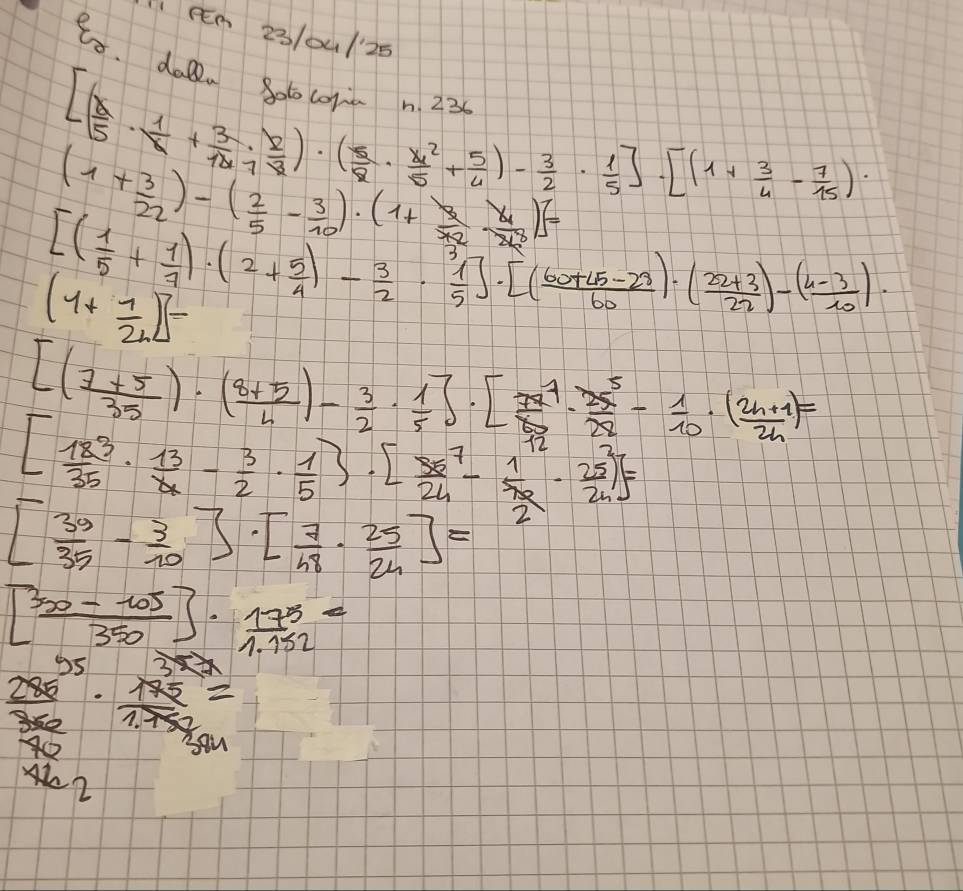 PER 23/04/'25
Es. dalla fotocopia n. 236
[(4/5 · 1/4 + 3/14 7 · 2/3) · (5/2 · 4²/5 + 5/4) - 3/2 · 1/5] · [(1 + 3/4 - 7/15) ·
(1 + 3/22) - (2/5 - 3/10) · (1 + 3/12 3 · 4/24 8)]=
[(1/5 + 1/7) · (2 + 5/4) - 3/2 · 1/5] · [(60+45-28/60) · (22+3/22) - (4-3/10) ·
(1 + 1/24)]=
[(7+5/35) · (8+5/4) - 3/2 · 1/5] · [77 7/60 12 · 25 5/22 - 1/10 · (24+1/24)=
[18 3/35 · 13/4 - 3/2 · 1/5] · [35 7/24 - 1/10 2 · 25 2/24)]=
[39/35 - 3/10] · [7/48 · 25/24]=
[390 - 105/350] · 175/1.152 =
95 357
285/350 · 175/1.152 =
70 384
14 2